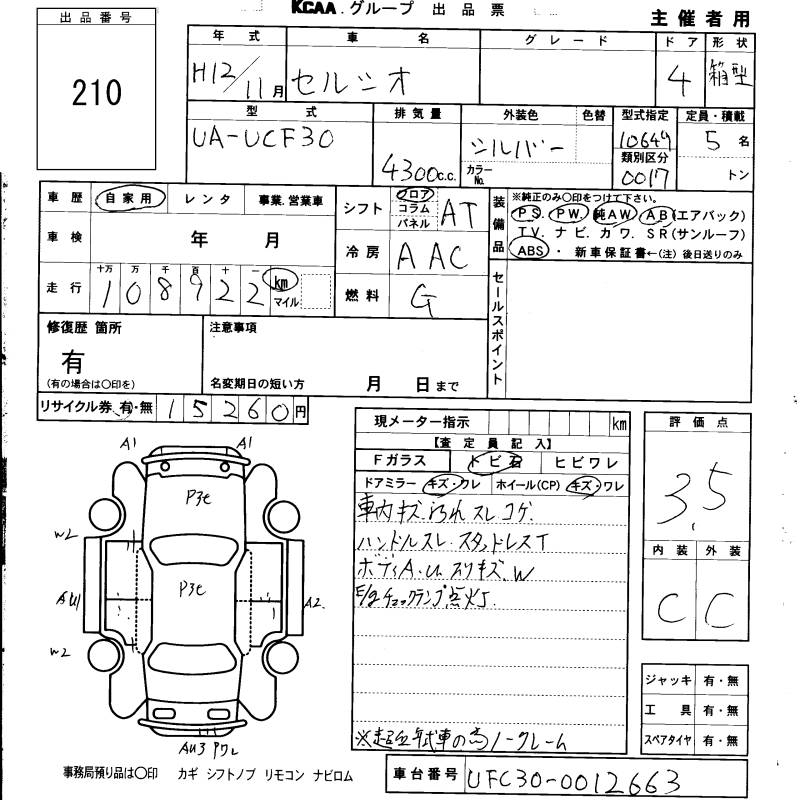 KCAA.グループ 出品票
主催者用
出品番号
210
年式 車名 グレード ドア 形状
H12/11月 セルシオ 4 箱型
型式 排気量 外装色 色替 型式指定 定員・積載
UA-UCF30 4300c.c. シルバー 10649 5名
カラーNo. 類別区分
0017 トン
車歴 自家用 レンタ 事業.営業車
シフト フロア コラム パネル AT
装備品 ※純正のみ〇印をつけて下さい。
PS. PW. 純AW. AB(エアバック)
TV. ナビ. カワ. SR(サンルーフ)
ABS. 新車保証書←(注)後日送りのみ
車検 年 月
冷房 AAC
セールスポイント
走行 十万 万 千 百 十 一
108922 km マイル
燃料 G
修復歴 箇所
有
(有の場合は〇印を)
注意事項
名変期日の短い方 月 日まで
リサイクル券 有・無 15260円
現メーター指示 km
評価点
3.5
【査定員記入】
Fガラス トビ石 ヒビワレ
ドアミラー キズ・ワレ ホイール(CP) キズ・ワレ
車内キズ.汚れ スレ コゲ.
ハンドルスレ.スタッドレスT
ボディA.U.スリキズ.W
E/gチェックランプ点灯.
内装 外装
C C
A1 A1
P3e
W2
P3e
AU1 A2
W2
AU3 ワレ
ジャッキ 有・無
工具 有・無
スペアタイヤ 有・無
※超低年式車の為ノークレーム
事務局預り品は〇印 カギ シフトノブ リモコン ナビロム
車台番号 UFC30-0012663